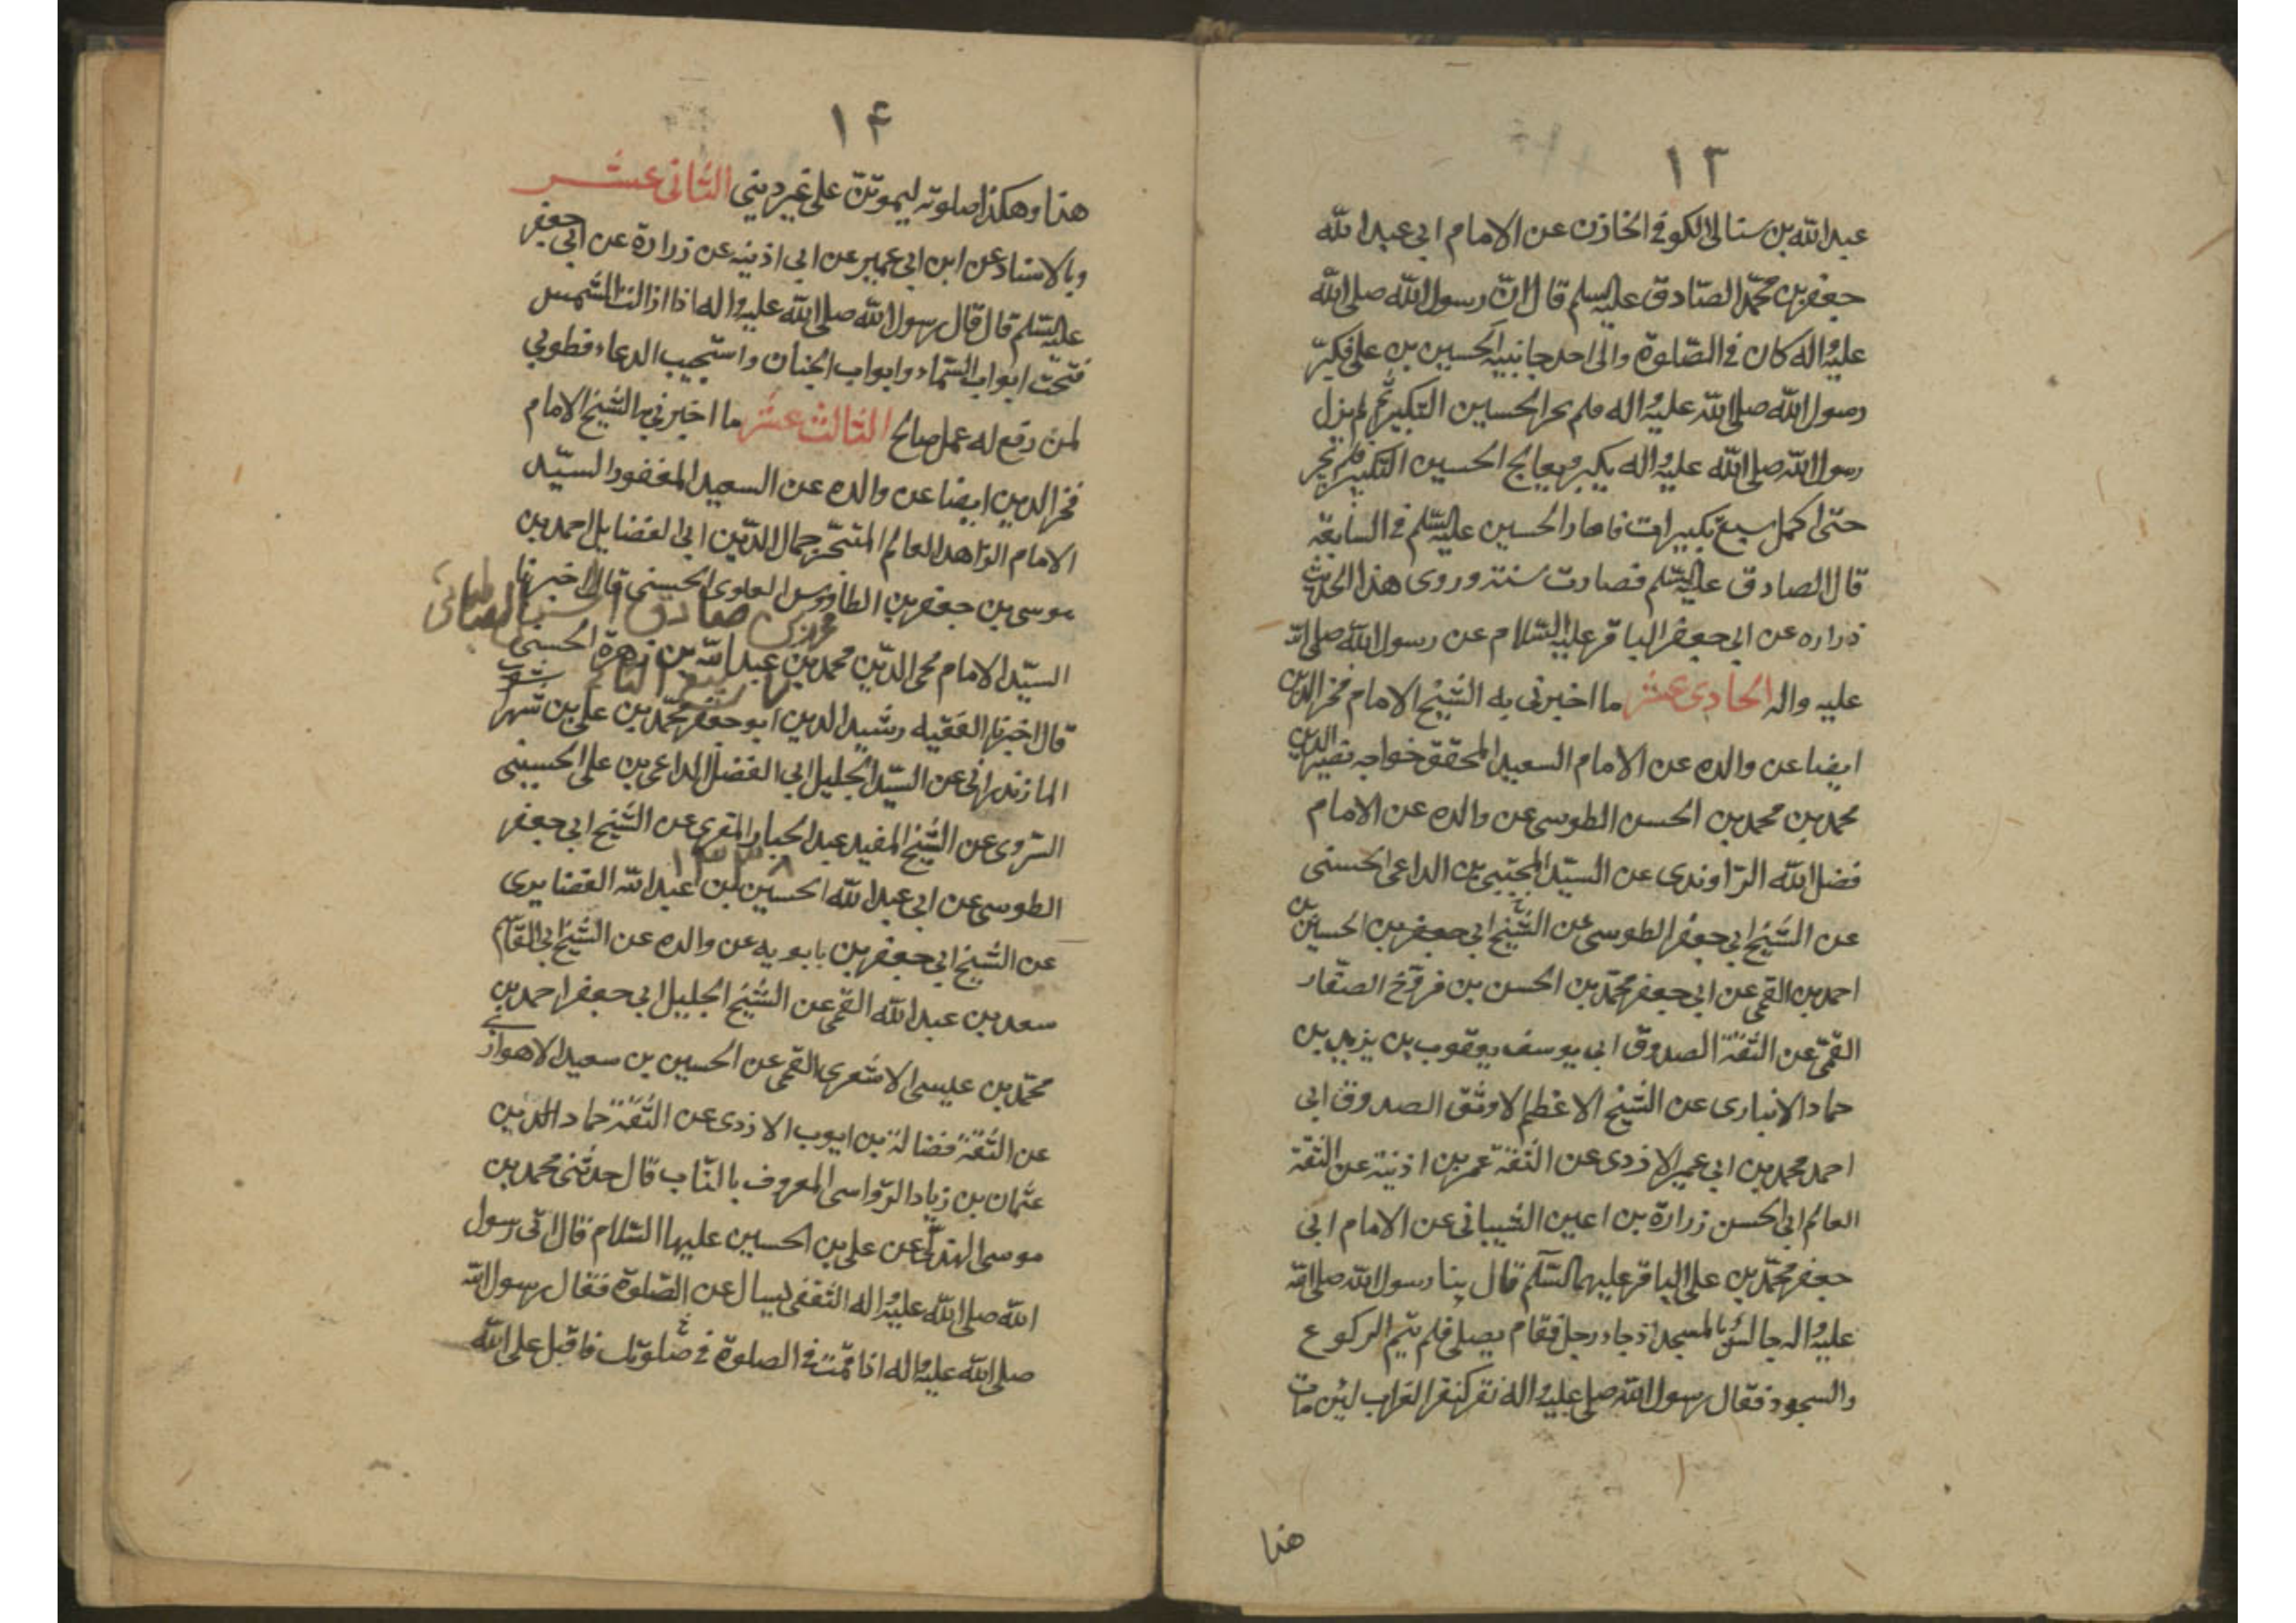 ١٣
عبد الله بن سنان الكوفى الخازن عن الامام ابى عبد الله
جعفر بن محمد الصادق عليه السلم قال ان رسول الله صلى الله
عليه واله كان فى الصلوة والى احد جانبيه الحسين بن على فكبر
رسول الله صلى الله عليه واله فلم يحر الحسين التكبير ثم لم يزل
رسول الله صلى الله عليه واله يكبر ويعالج الحسين التكبير فلم يحر
حتى اكمل سبع تكبيرات فاحار الحسين عليه السلم فى السابعة
قال الصادق عليه السلم فصارت سنة وروى هذا الحديث
زراره عن ابى جعفر الباقر عليه السلام عن رسول الله صلى الله
عليه واله الحادى عشر ما اخبرنى به الشيخ الامام فخر الدين
ايضا عن والده عن الامام السعيد المحقق خواجه نصير الدين
محمد بن محمد بن الحسن الطوسى عن والده عن الامام
فضل الله الراوندى عن السيد المجتبى بن الداعى الحسنى
عن الشيخ ابى جعفر الطوسى عن الشيخ ابى جعفر بن الحسين بن
احمد بن القمى عن ابى جعفر محمد بن الحسن بن فروخ الصفار
القمى عن الثقة الصدوق ابى يوسف يعقوب بن يزيد بن
حماد الانبارى عن الشيخ الاعظم الاوثق الصدوق ابى
احمد محمد بن ابى عمير الازدى عن الثقة عمر بن اذنية عن الثقة
العالم ابى الحسن زرارة بن اعين الشيبانى عن الامام ابى
جعفر محمد بن على الباقر عليهما السلم قال بينا رسول الله صلى الله
عليه واله جالس بالمسجد اذ جاء رجل فقام يصلى فلم يتم الركوع
والسجود فقال رسول الله صلى عليه واله نقر كنقر الغراب لئن مات
هذا
١۴
هذا وهكذا صلوته ليموتن على غير دينى الثانى عشر
وبالاسناد عن ابن ابى عمير عن ابى اذينه عن زرارة عن ابى جعفر
عليه السلم قال قال رسول الله صلى الله عليه واله اذا ازالت الشمس
فتحت ابواب السماء وابواب الجنان واستجيب الدعاء فطوبى
لمن رفع له عمل صالح الثالث عشر ما اخبرنى به الشيخ الامام
فخر الدين ايضا عن والده عن السعيد المغفور السيد
الامام الزاهد العالم المتبحر جمال الدين ابى الفضايل احمد بن
موسى بن جعفر بن الطاووس العلوى الحسنى قال اخبرنا
السيد الامام محى الدين محمد بن عبد الله بن زهرة الحسنى
قال اخبرنا الفقيه رشيد الدين ابو جعفر محمد بن على بن شهراشوب
المازندرانى عن السيد الجليل ابى الفضل الداعى بن على الحسينى
السروى عن الشيخ المفيد عبد الجبار المقرى عن الشيخ ابى جعفر
١٣٣٨
الطوسى عن ابى عبد الله الحسين بن عبد الله الغضايرى
عن الشيخ ابى جعفر بن بابويه عن والده عن الشيخ ابى القاسم
سعد بن عبد الله القمى عن الشيخ الجليل ابى جعفر احمد بن
محمد بن عيسى الاشعرى القمى عن الحسين بن سعيد الاهوازى
عن الثقة فضالة بن ايوب الازدى عن الثقة حماد الدين
عثمان بن زياد الرواسى المعروف بالناب قال حدثنى محمد بن
موسى الهذلى عن على بن الحسين عليها السلام قال اتى رسول
الله صلى الله عليه واله الثقفى يسال عن الصلوة فقال رسول الله
صلى الله عليه واله اذا قمت فى الصلوة فى صلوتك فاقبل على الله